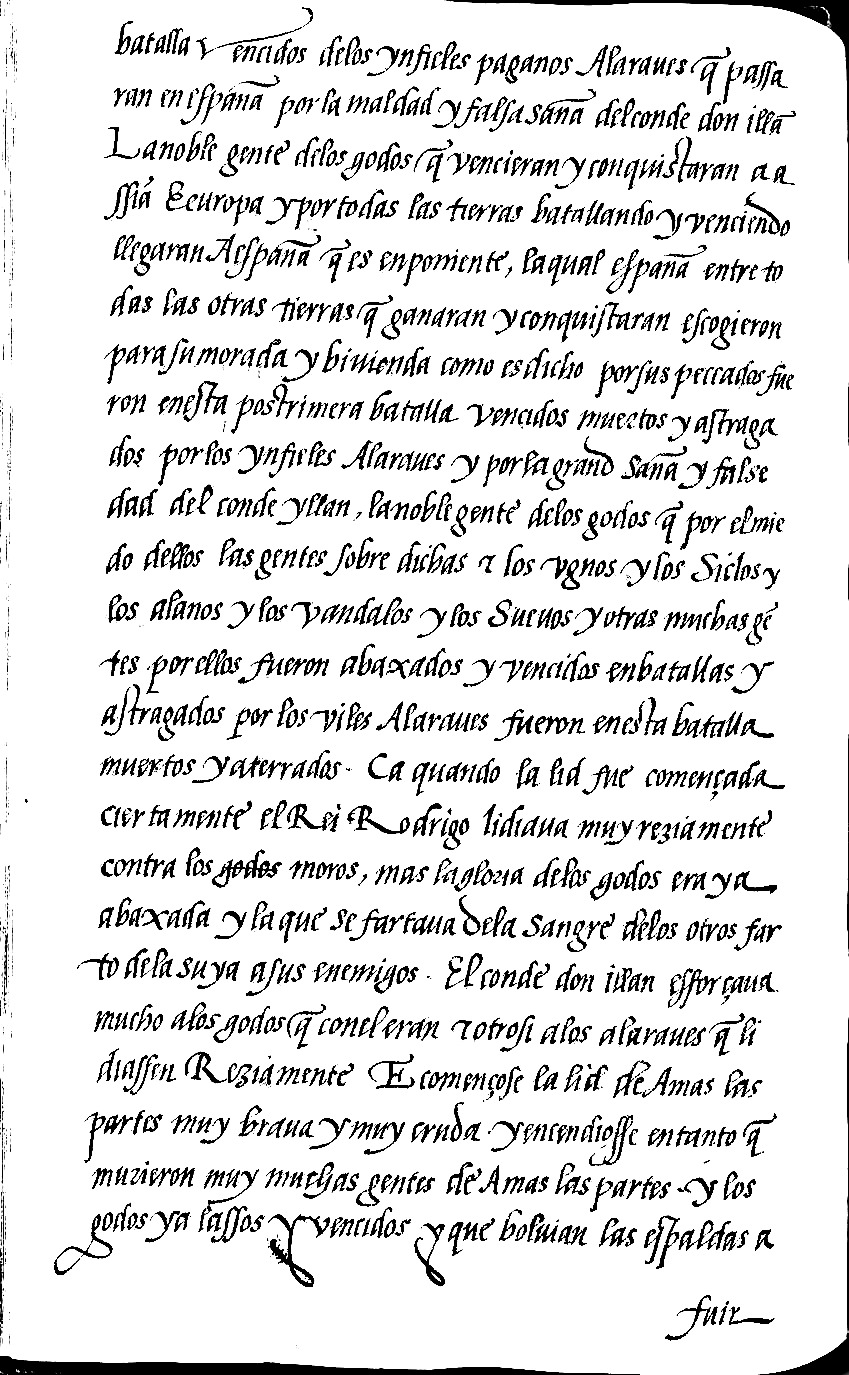 batalla y vencidos delos ynfieles paganos Alaraues q̃ passa
ran en españa por la maldad y falsa saña del conde don illã
La noble gente delos godos q̃ vencieran y conquistaran a a
ssiã E europa y por todas las tierras batallando y venciendo
llegaran A españa q̃ es en poniente, la qual españa entre to
das las otras tierras q̃ ganaran y conquistaran escogieron
para su morada y biuienda como es dicho por sus peccados fue
ron en esta postrimera batalla vencidos muertos y astraga
dos por los ynfieles Alaraues y por la grand saña y false
dad del conde yllan, la noble gente delos godos q̃ por el mie
do dellos las gentes sobre dichas & los vgnos y los Siclos y
los alanos y los vandalos y los Sueuos y otras muchas gẽ
tes por ellos fueron abaxados y vencidos en batallas y
astragados por los viles Alaraues fueron en esta batalla
muertos y aterrados. Ca quando la lid fue començada
ciertamente el Rei Rodrigo lidiaua muy reziamente
contra los godos moros, mas la gloria delos godos era ya
abaxada y la que se fartaua dela sangre delos otros far
to dela suya a sus enemigos. El conde don illan esforçaua
mucho alos godos q̃ con el eran & otrosi alos alaraues q̃ li
diassen Reziamente E començose la lid de Amas las
partes muy braua y muy cruda. y encendiosse en tanto q̃
murieron muy muchas gentes de Amas las partes. y los
godos ya lassos y vencidos y que boluian las espaldas a
fuir